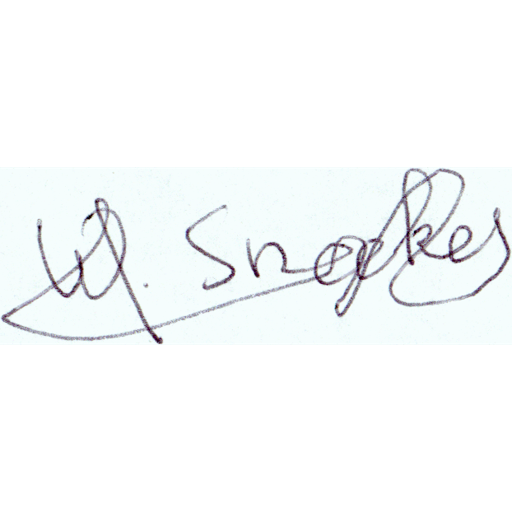 W. Snookes